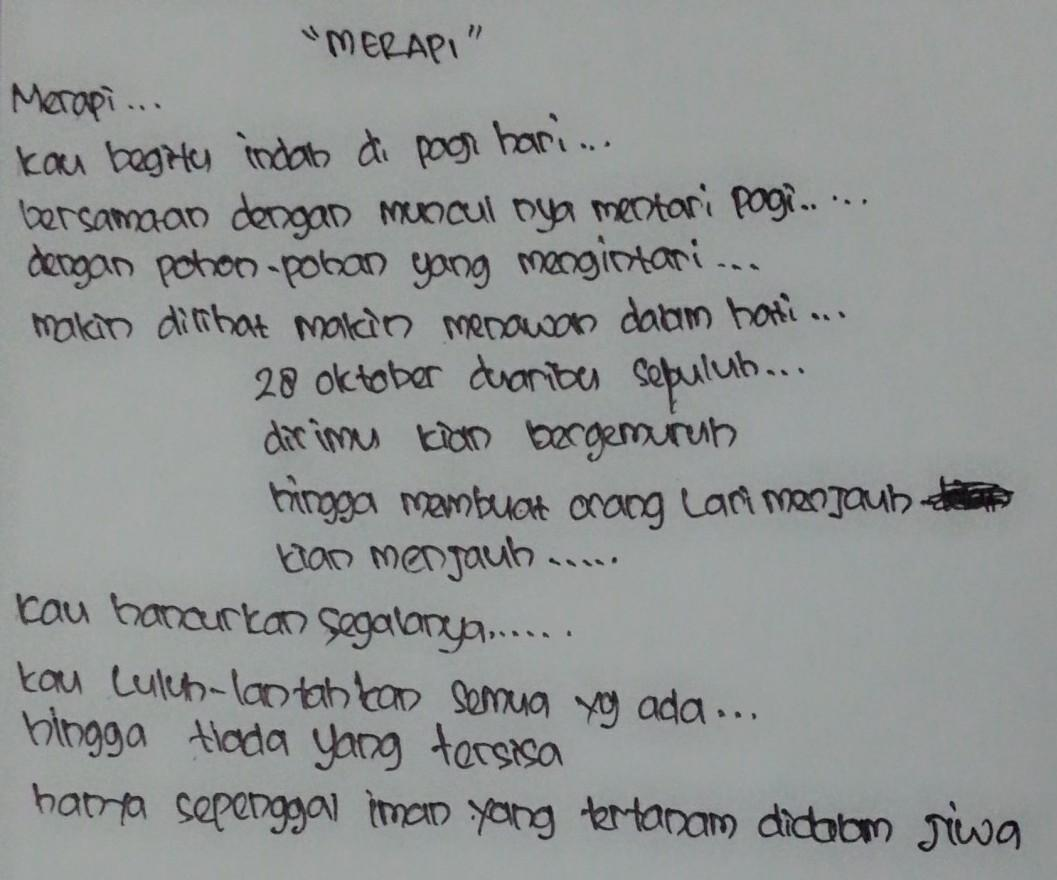 "MERAPI"
Merapi...
kau begitu indah di pagi hari...
bersamaan dengan muncul nya mentari pagi.....
dengan pohon-pohon yang mengintari...
makin dilihat makin menawan dalam hati...
28 oktober duaribu sepuluh...
dirimu kian bergemuruh
hingga membuat orang Lari menjauh
kian menjauh.....
kau hancurkan segalanya......
kau Luluh-lantahkan semua yg ada...
hingga tiada yang tersisa
hanya sepenggal iman yang tertanam didalam jiwa